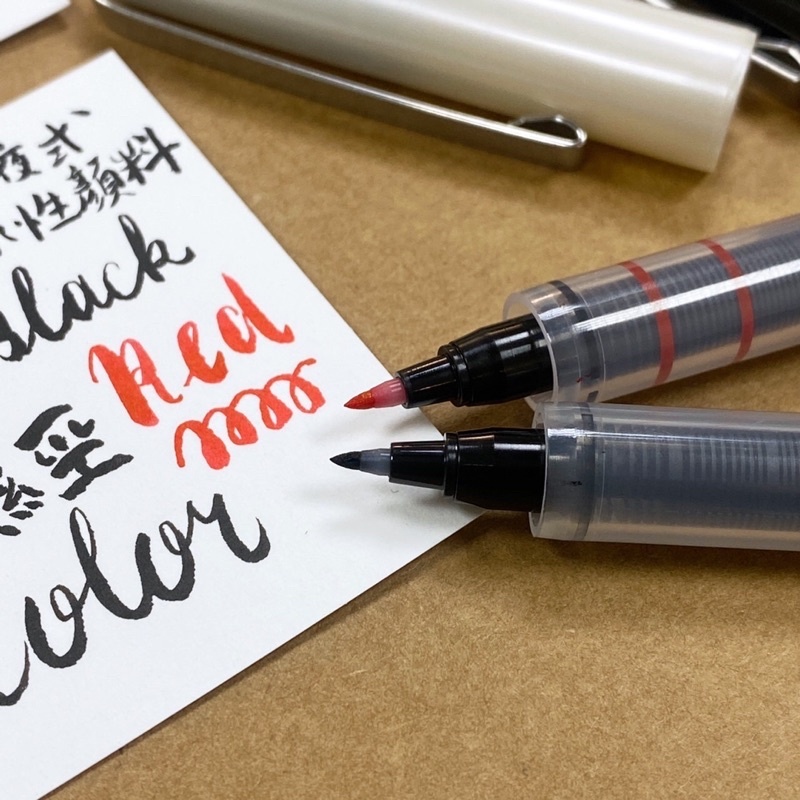 液式
性顏料
Black
Red
經
Color